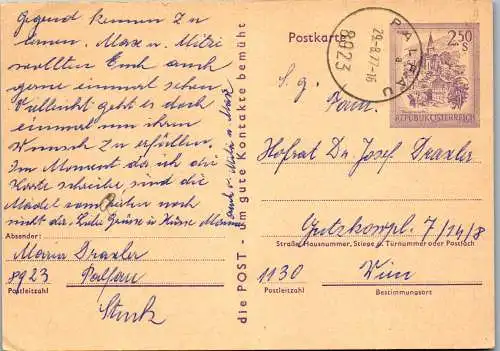 Gegend kennen zu
lernen. Max u. Mitzi
wollten Euch auch
gerne einmal sehen.
Vielleicht geht es doch
einmal um ihren
Wunsch zu erfüllen.
Im Moment da ich die
Karte schreibe, sind die
Mädel vom reiten noch
nicht da. Liebe Grüsse u. Küsse Mama
auch v. Mitzi u. Max
Absender:
Maria Draxler
8923 Palfau
Postleitzahl
Stuck
die POST - um gute Kontakte bemüht
Postkarte
PALFAU
a
29.-8.77-16
8923
2,50
S
REPUBLIK ÖSTERREICH
S. g.
Fam.
Hofrat Dr. Josef Draxler
7/14/8
Straße, Hausnummer, Stiege u. Türnummer oder Postfach
1130 Wien
Postleitzahl Bestimmungsort